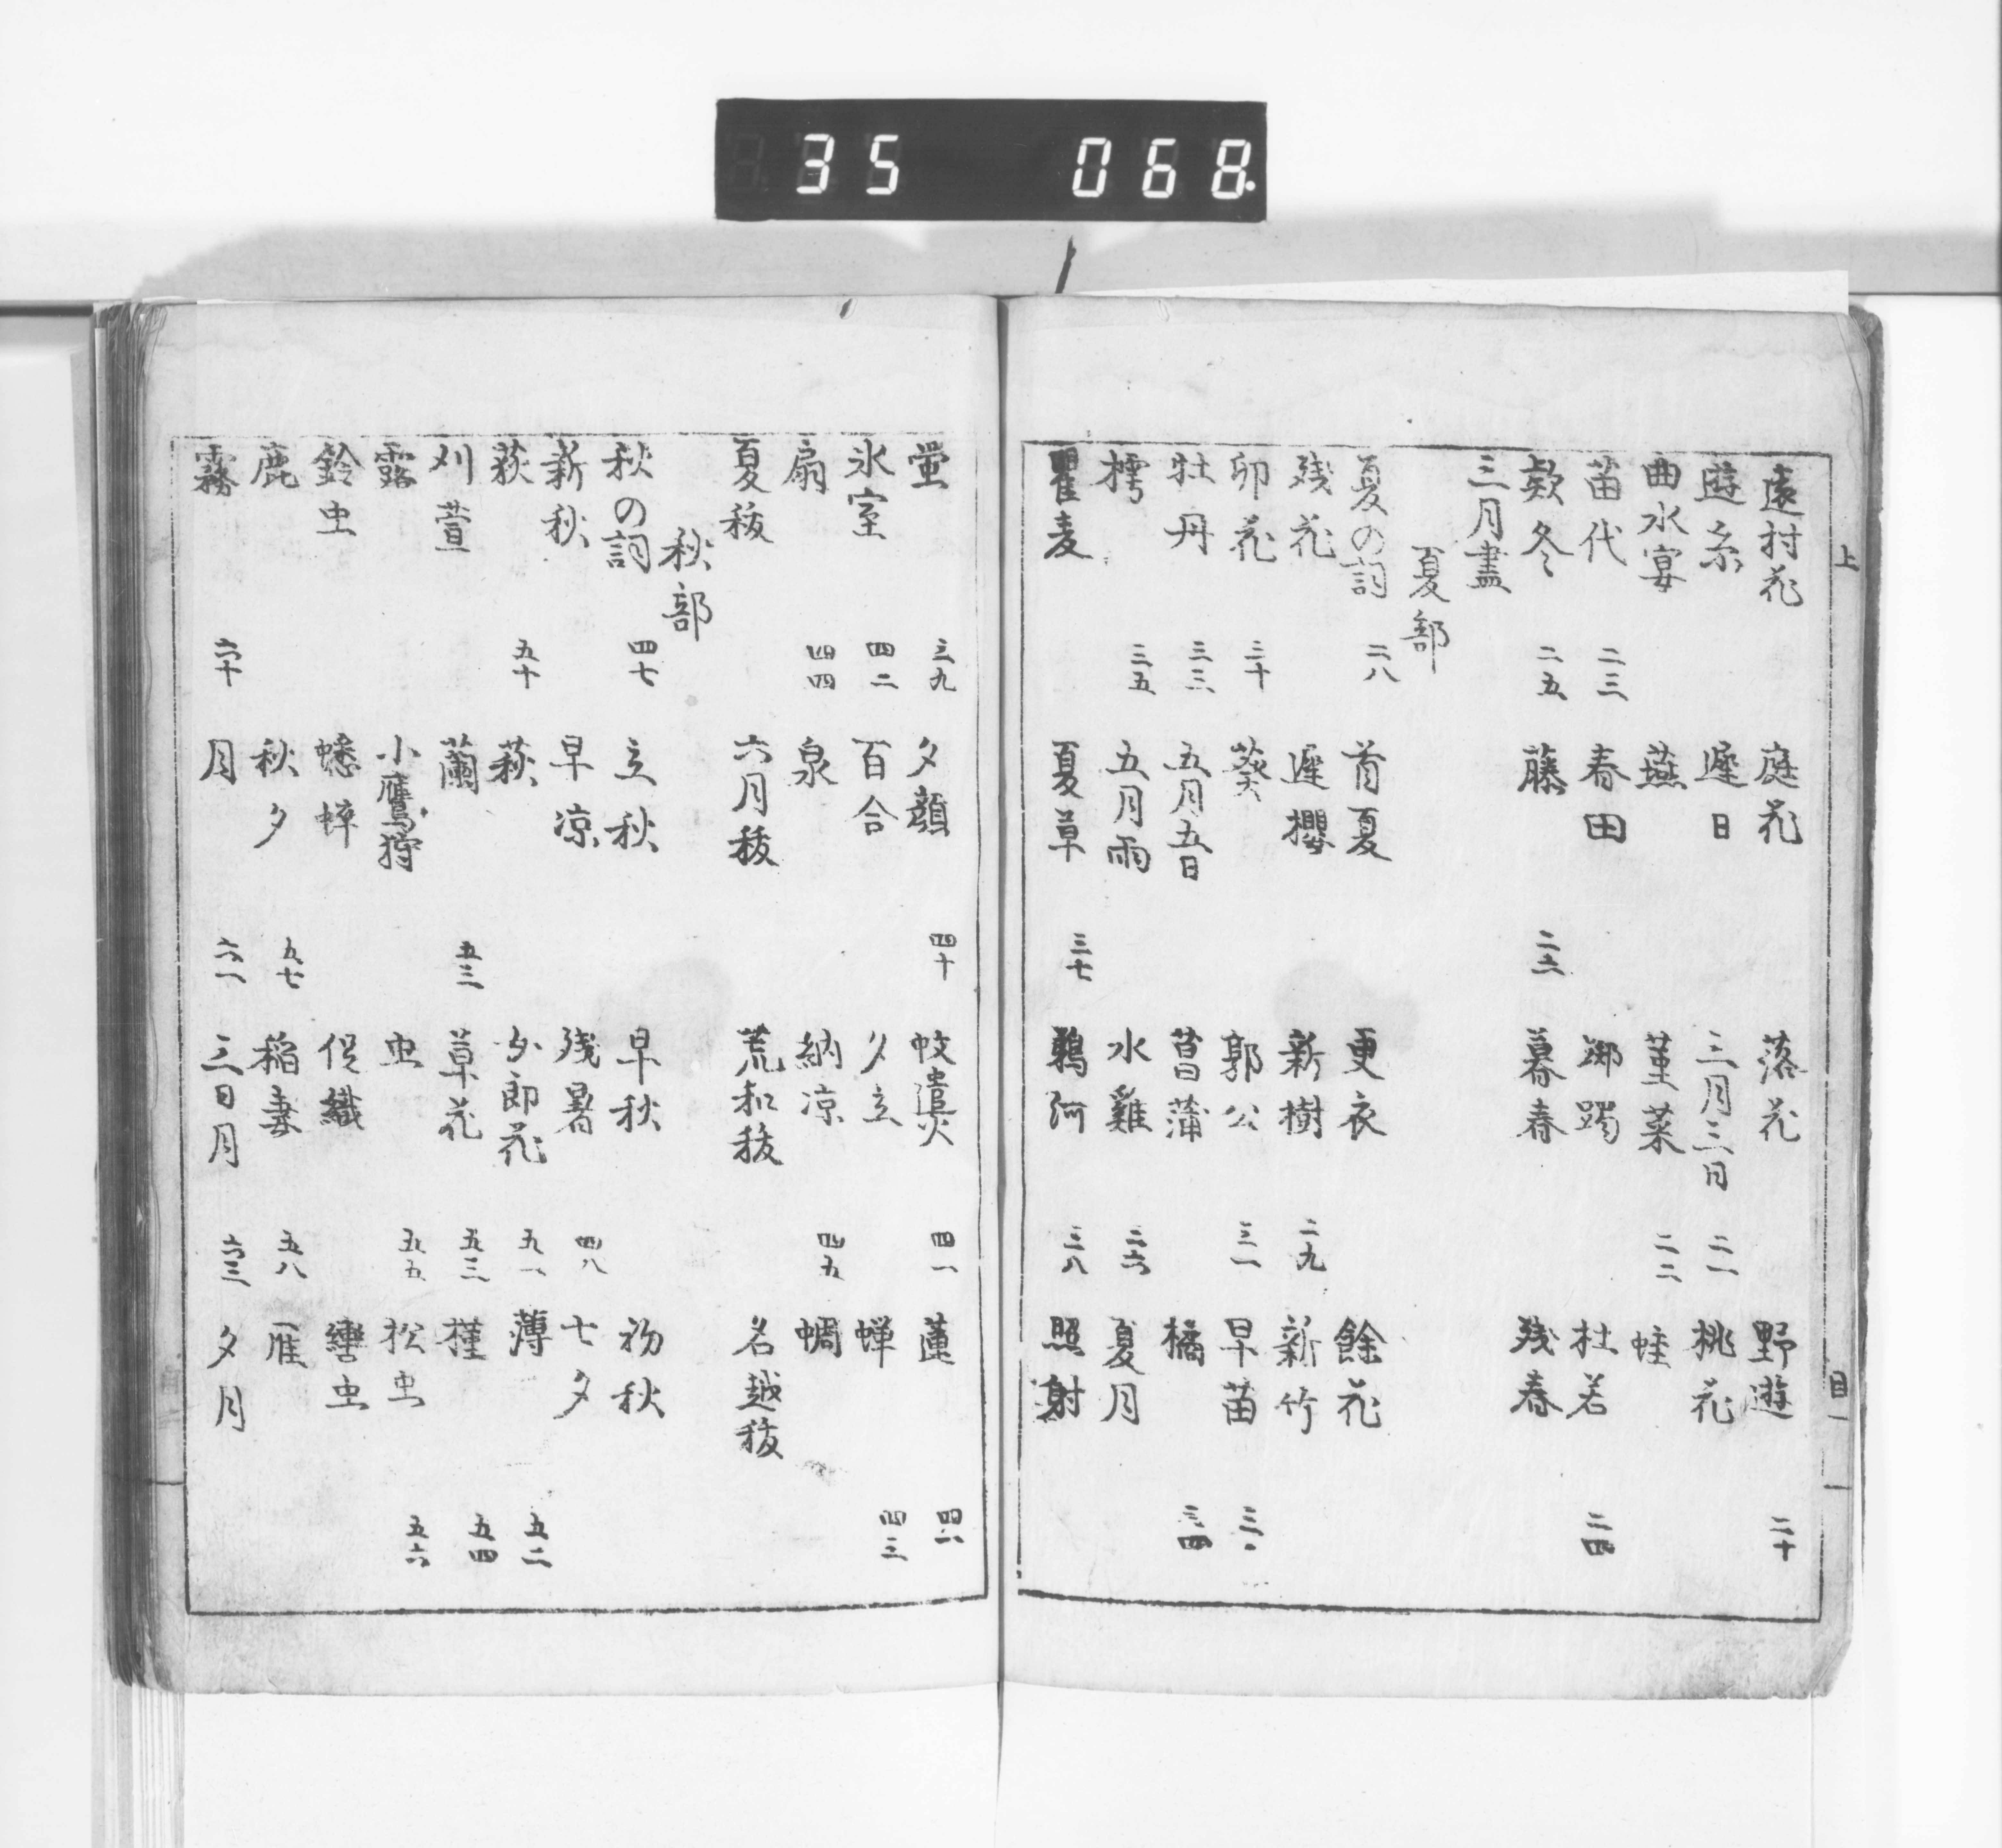 35 068
上 目一
遠村花 庭花 落花 野遊 二十
遊糸 遅日 三月三日 二一 桃花
曲水宴 燕 菫菜 二二 蛙
苗代 二三 春田 躑躅 杜若 二四
欵冬 二五 藤 二六 暮春 残春
三月盡
夏部
夏の詞 二八 首夏 更衣 餘花
残花 遅櫻 新樹 二九 新竹
卯花 三十 葵 郭公 三一 早苗
牡丹 三三 五月五日 菖蒲 橘 三四
樗 三五 五月雨 水雞 三六 夏月
瞿麦 夏草 三七 鵜河 三八 照射
蛍 三九 夕顔 四十 蚊遣火 四一 蓮
氷室 四二 百合 夕立 蝉 四三
扇 四四 泉 納凉 四五 蜩
夏秡 六月秡 荒和秡 名越秡
秋部
秋の詞 四七 立秋 早秋 初秋
新秋 早凉 残暑 四八 七夕
荻 五十 萩 女郎花 五一 薄 五二
刈萱 蘭 五三 草花 五三 槿 五四
露 小鷹狩 虫 五五 松虫 五六
鈴虫 蟋蟀 促織 轡虫
鹿 秋夕 五七 稲妻 五八 雁
霧 六十 月 六一 三日月 六三 夕月